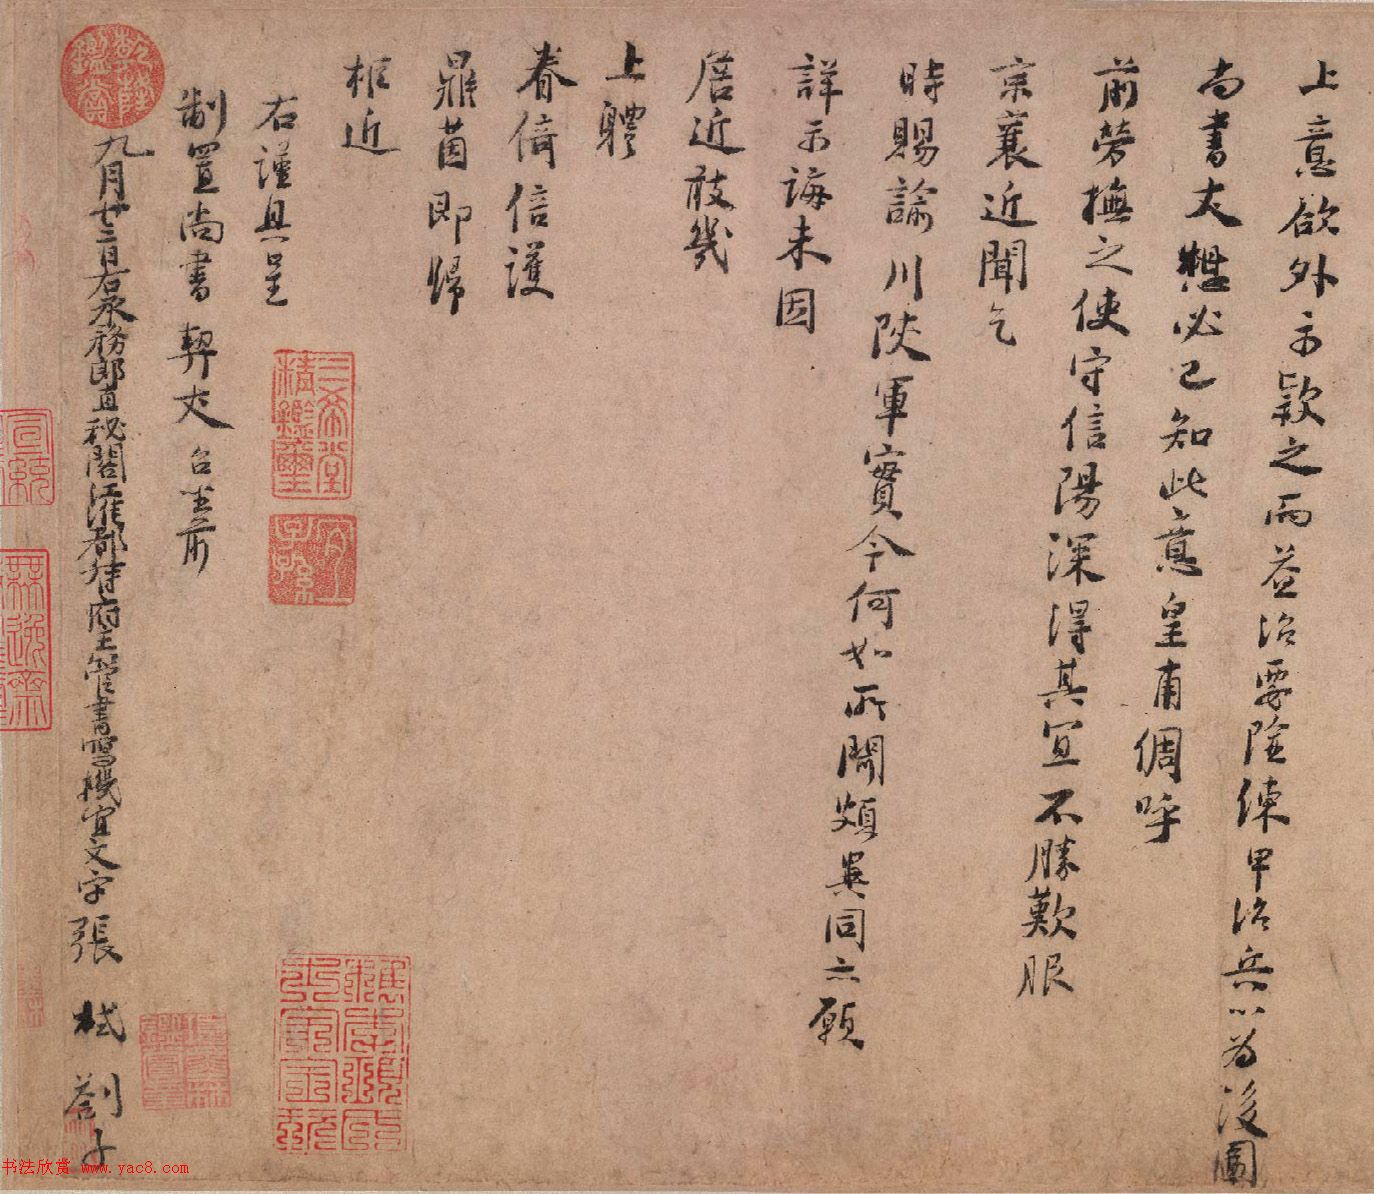 上意欲外示欵之而益治要險練甲治兵以為後圖
尚書大䡖必已知此意皇甫倜呼
前勞撫之使守信陽深得其宜不勝歎服
京襄近聞乞
時賜諭川陜軍實今何如所聞頗異同亦願
詳示誨未因
居近敢幾
上軆
眷倚倍護
鼎茵即歸
柩近
右謹具呈
制置尚書 契丈 台坐前
九月廿二日右承務郎直秘閣江淮都督府主管書寫機宜文字張 栻 劄子
三希堂精鑑璽
宜子孫
乾隆鑑賞
書法欣赏 www.yac8.com